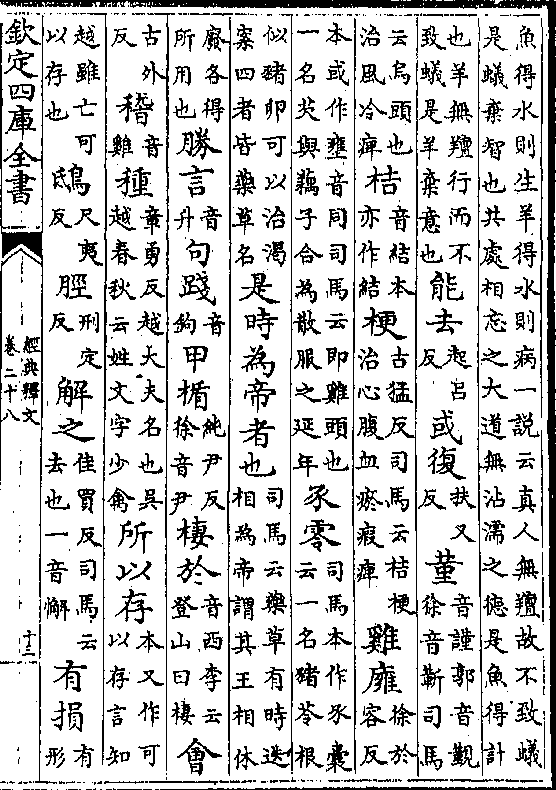 魚得水則生羊得水則病一說云真人無羶故不致蟻是蟻棄智也共處相忘之大道無沾濡之德是魚得計
也羊無羶行而不致蟻是羊棄意也能去起呂反或復扶又反堇音謹郭音覲徐音靳司馬
云烏頭也治風冷痺桔音結本亦作結梗古猛反司馬云桔梗治心腹血瘀瘕痺雞廱徐於容反
本或作壅音同司馬云即雞頭也一名芡與藕子合為散服之延年豕零司馬本作豕囊云一名豬苓根
似豬卵可以治渴案四者皆藥草名是時為帝者也司馬云藥草有時迭相為帝謂其王相休
廢各得所用也勝言音升句踐音鉤甲楯純尹反徐音尹棲於音西李云登山曰棲會
古外反稽音雞種章勇反越大夫名也吳越春秋云姓文字少禽所以存本又作可以存言知
越雖亡可以存也鴟尺夷反脛刑定反解之佳買反司馬云去也一音懈有損有形
欽定四庫全書
經典釋文
卷二十八
十三